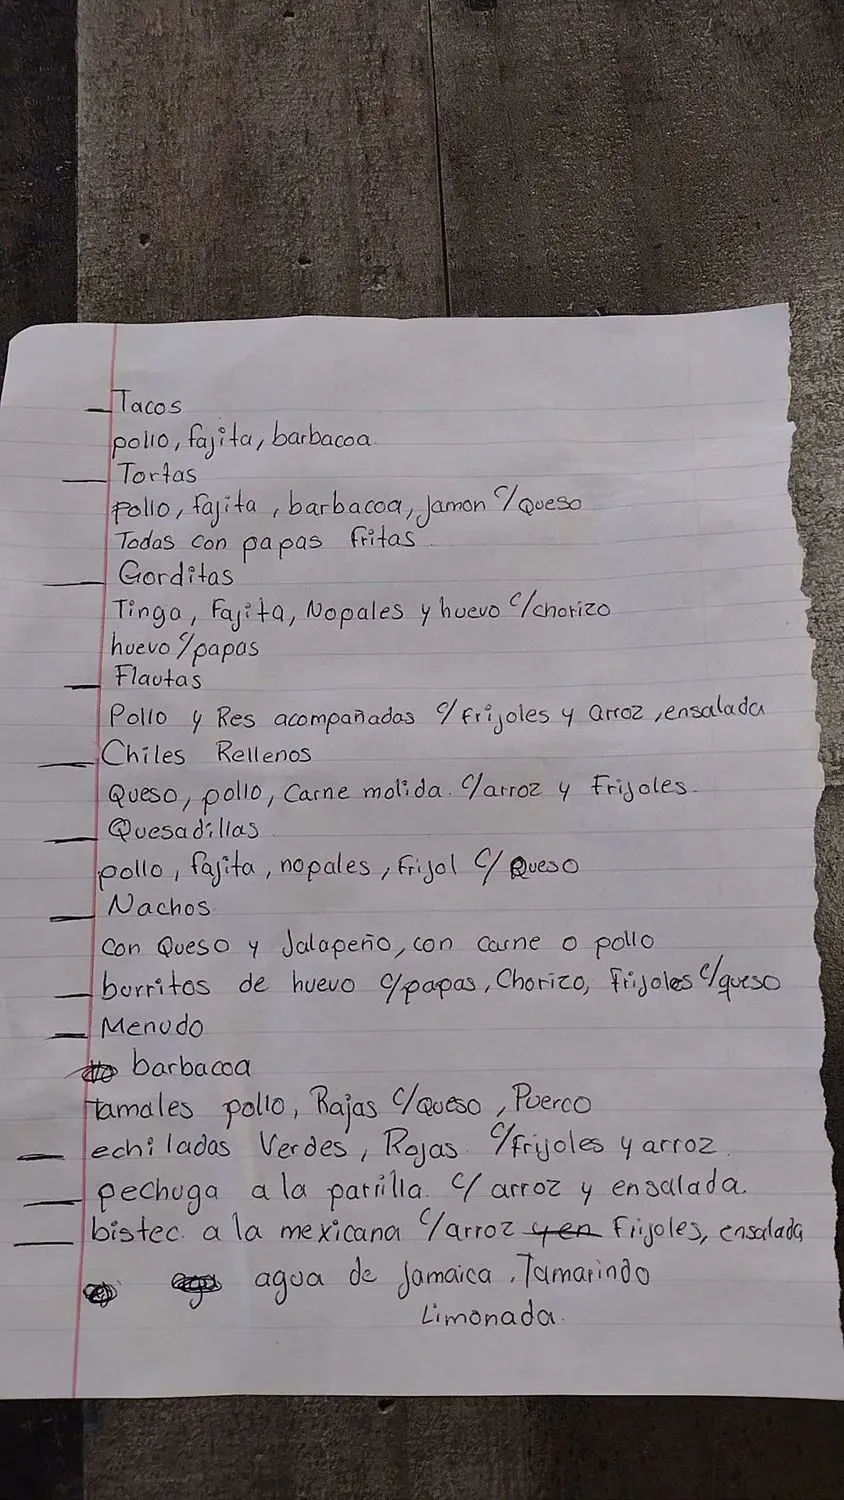 Tacos
pollo, fajita, barbacoa.
Tortas
Pollo, fajita, barbacoa, Jamon c/Queso
Todas con papas fritas.
Gorditas
Tinga, Fajita, Nopales y huevo c/chorizo
huevo c/papas
Flautas
Pollo y Res acompañadas c/frijoles y arroz, ensalada
Chiles Rellenos
Queso, pollo, Carne molida. c/arroz y Frijoles.
Quesadillas.
pollo, fajita, nopales, frijol c/ Queso
Nachos.
con Queso y Jalapeño, con carne o pollo
burritos de huevo c/papas, Chorizo, Frijoles c/queso
Menudo
barbacoa
tamales pollo, Rajas c/Queso, Puerco
echiladas Verdes, Rojas. c/frijoles y arroz.
pechuga a la parrilla. c/ arroz y ensalada.
bistec. a la mexicana c/arroz y en Frijoles, ensalada
agua de Jamaica, Tamarindo
Limonada.